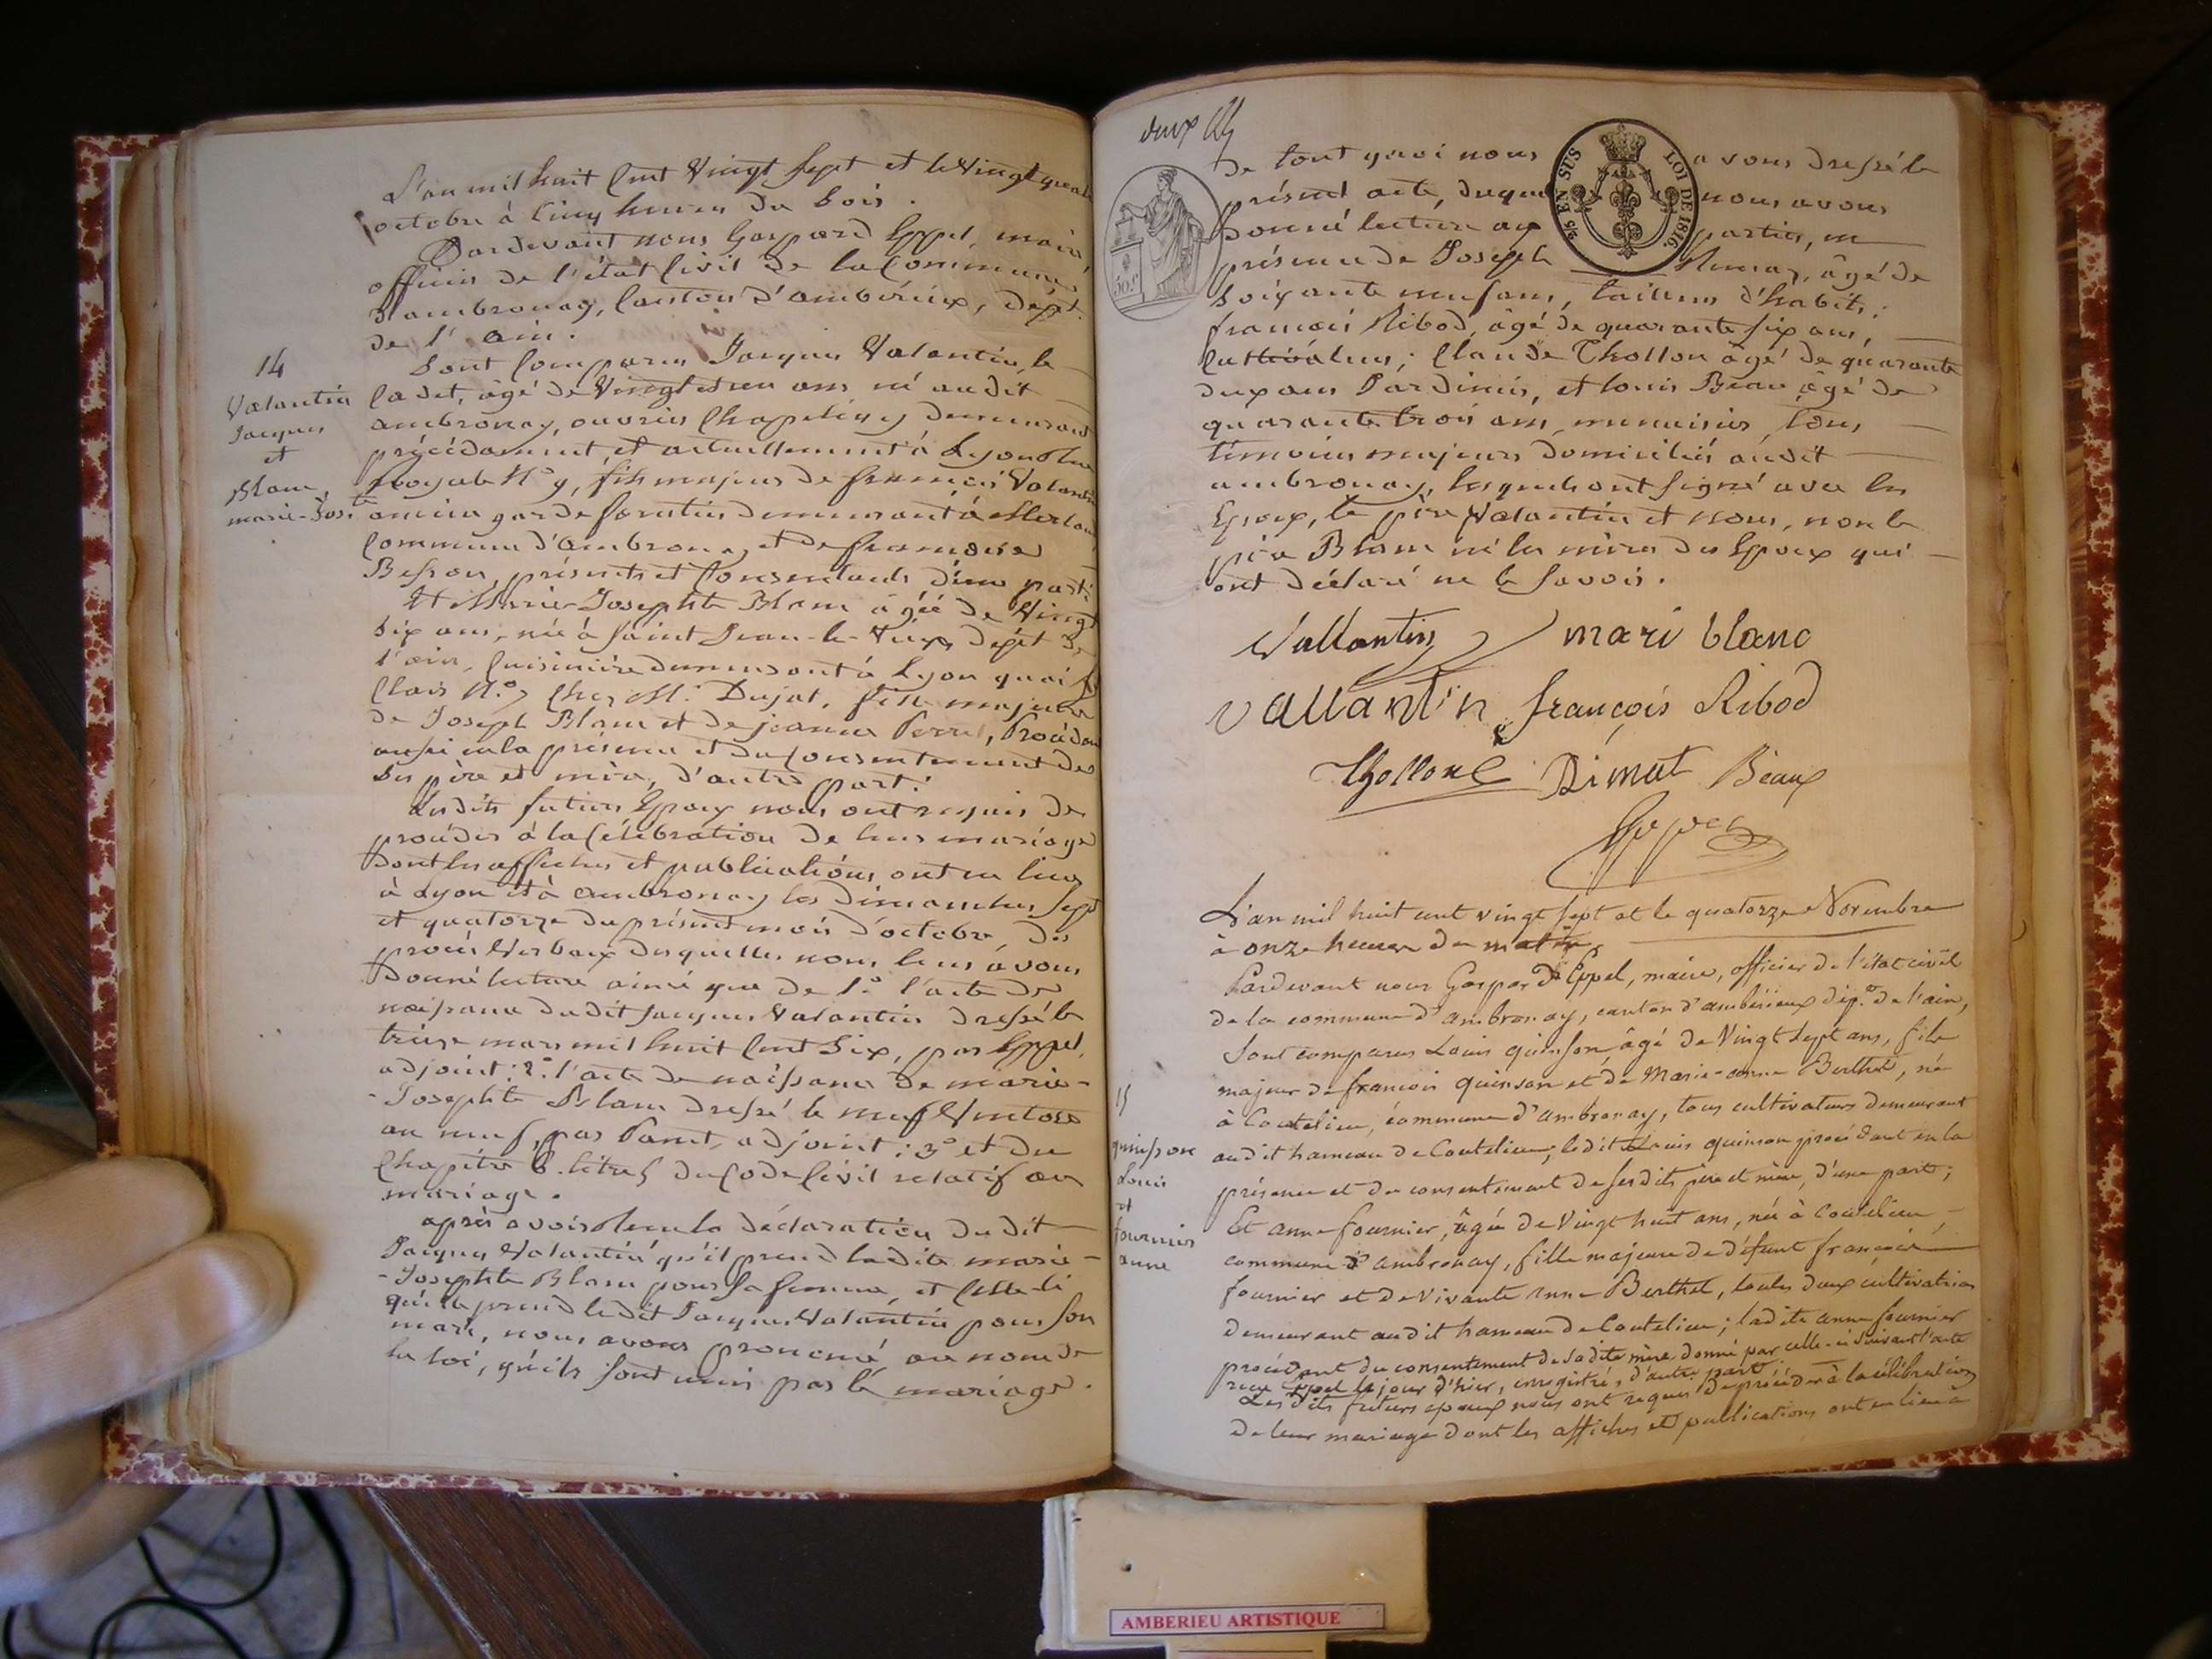 L'an mil huit cent vingt sept et le vingt quatre
octobre à cinq heures du soir.
Pardevant nous Gaspard Eppel, maire
officier de l'état civil de la commune
d'ambronay, canton d'ambérieux, dépt.
de l'ain.
14
Valantin
Jacques
et
Blanc
marie-Jos.te
Sont comparus Jacques Valantin, le
cadet, âgé de vingt et un ans né audit
ambronay, ouvrier chapelier, demeurant
précédemment, et actuellement à Lyon
N° 9, fils majeur de françois Valantin
ancien garde forestier demeurant à
commune d'ambronay et de françoise
Besson, présents et consentants d'une part;
Et Marie-Josephte Blanc âgée de vingt
six ans, née à Saint Jean-le-Vieux dépt. de
l'ain, cuisinière demeurant à Lyon quai St
Clair N.° chez M. Dujat, fille majeure
de Joseph Blanc et de jeanne Perret, Procédant
aussi en la présence et du consentement des
ses père et mère, d'autre part.
Lesdits futurs Epoux nous ont requis de
procéder à la célébration de leur mariage
dont les affiches et publications ont eu lieu
à Lyon et à ambronay les dimanches sept
et quatorze du présent mois d'octobre, des
procès verbaux desquelles nous leur avons
donné lecture ainsi que de 1.° l'acte de
naissance dudit Jacques Valantin dressé le
treize mars mil huit cent six, par Eppel,
adjoint: 2.° l'acte de naissance de marie-
-Josephte Blanc dressé le neuf Ventose
an neuf, par adjoint: 3° et du
chapitre 6. titre 5 du code civil relatif au
mariage.
après avoir la déclaration dudit
Jacques Valantin qu'il prend ladite marie-
-Josephte Blanc pour sa femme, et celle-ci
qu'elle prend ledit Jacques Valantin pour son
mari, nous avons prononcé au nom de
la loi, qu'ils sont unis par le mariage.
deux
50 c.
25 EN SUS
LOI DE 1816.
De tout quoi nous avons dressé le
présent acte, duquel nous avons
donné lecture aux parties, en
présence de Joseph Dimat, âgé de
soixante neuf ans, tailleur d'habits;
francois Ribod, âgé de quarante six ans,
cultivateur; Claude Thollon âgé de quarante
deux ans Jardinier, et Louis Beau âgé de
quarante trois ans, menuisier, tous
témoins majeurs domiciliés audit
ambronay, lesquels ont signé avec les
Epoux, le père Valantin et nous, non le
père Blanc ni les mères des Epoux qui
ont déclaré ne le savoir.
Vallantin mari blanc
vallantin françois Ribod
Thollon Dimat Beaux
Eppel
L'an mil huit cent vingt sept et le quatorze Novembre
à onze heures du matin
Pardevant nous Gaspard Eppel, maire, officier de l'état civil
de la commune d'ambronay, canton d'ambérieux dép.t de l'ain,
15
quinson
Louis
et
fournier
anne
Sont comparus Louis quinson, âgé de Vingt Sept ans, fils
majeur de francois quinson et de Marie-anne Berthet, né
à Coutelieu, commune d'ambronay, tous cultivateurs demeurant
audit hameau de Coutelieu; ledit Louis quinson procédant en la
présence et du consentement de sesdits père et mère, d'une part;
Et anne fournier, âgée de Vingt huit ans, née à Coutelieu,
commune d'ambronay, fille majeure de défunt francois
fournier et de vivante anne Berthet, toutes deux cultivatrices
demeurant audit hameau de Coutelieu; ladite anne fournier
procédant du consentement de sadite mère donné par celle-ci suivant l'acte
reçu Eppel le jour d'hier, enregistré, d'autre part.
Lesdits futurs epoux nous ont requis de procéder à la célébration
de leur mariage dont les affiches et publications ont eu lieu à
AMBERIEU ARTISTIQUE